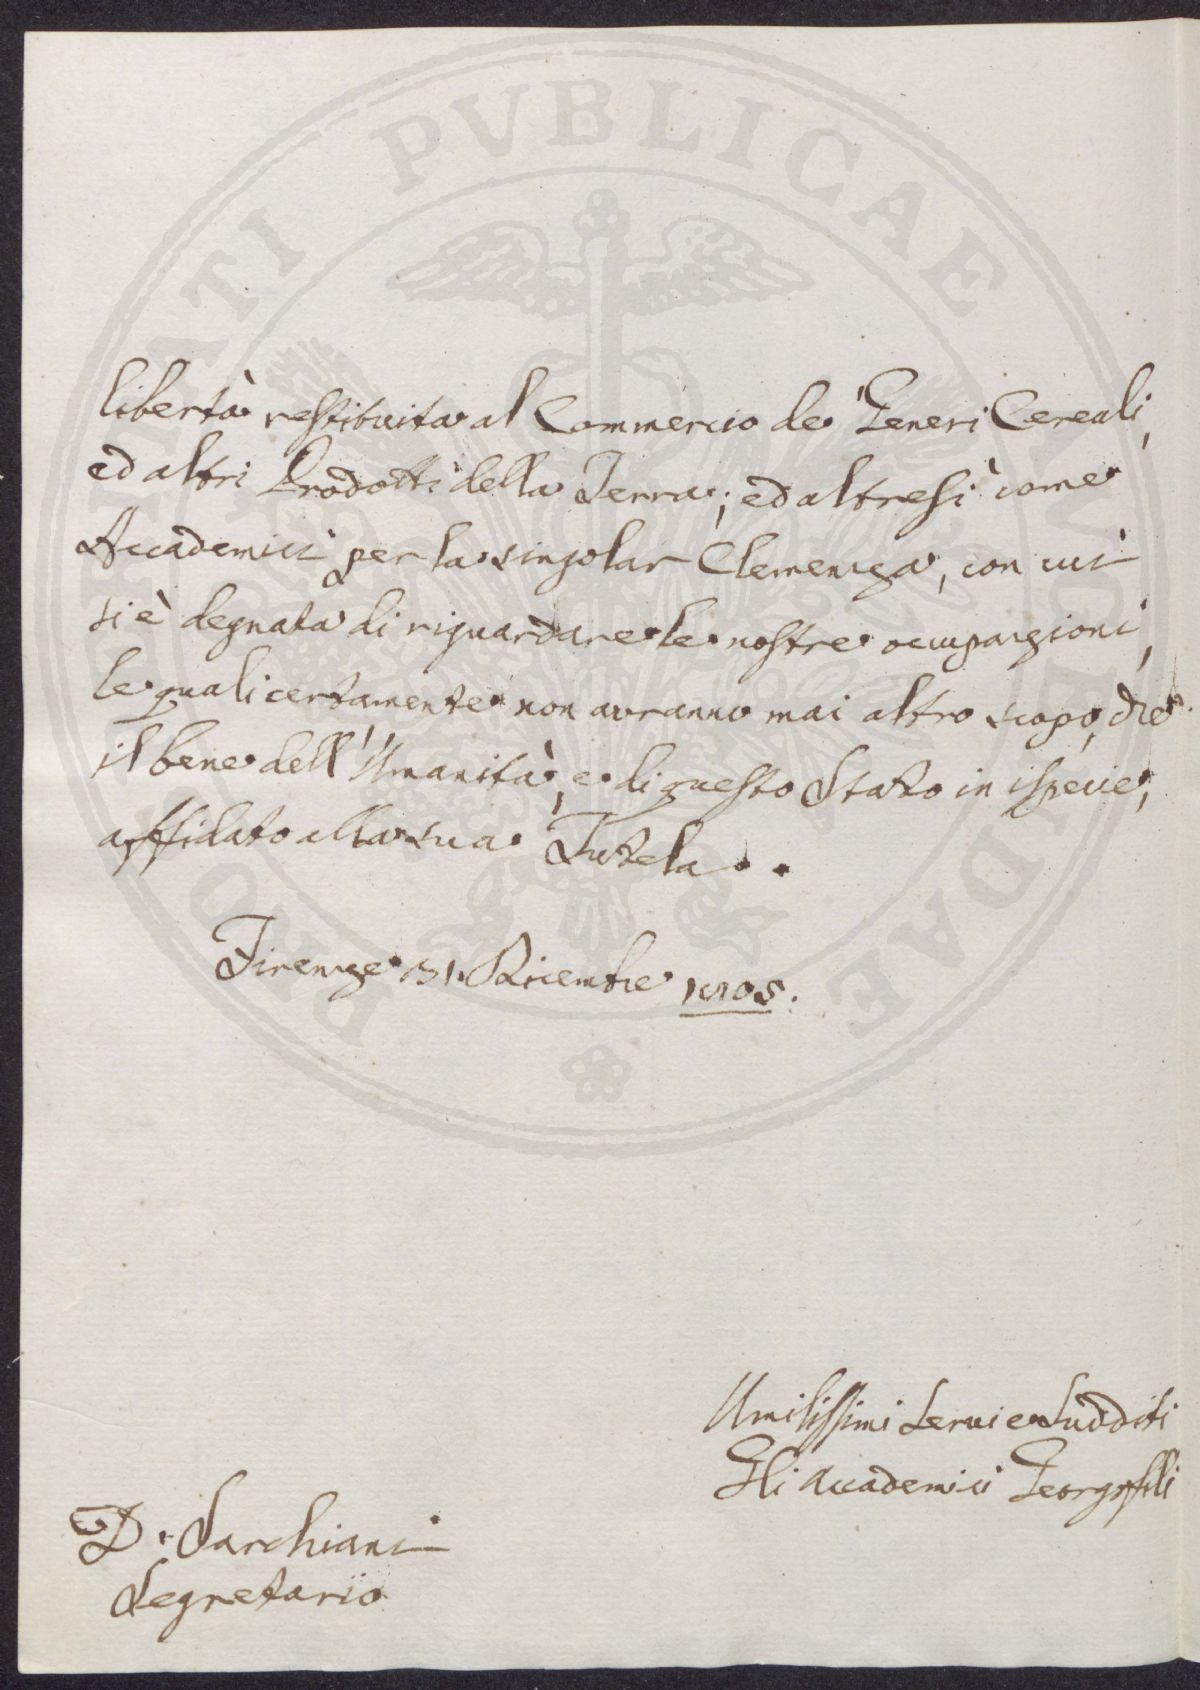 PROSPERITATI PVBLICAE AVGENDAE
libertà restituita al Commercio de' Generi Cereali,
ed altri Prodotti della Terra; ed altresì come
Accademici per la singolar Clemenza, con cui
si è degnata di riguardare le nostre occupazioni,
le quali certamente non avranno mai altro scopo, che
il bene dell'Umanità, e di questo Stato in ispecie,
affidato alla sua Tutela.
Firenze 31. Dicembre 1805.
Umilissimi Servi e Sudditi
Gli Accademici Georgofili
D. Sarchiani
Segretario